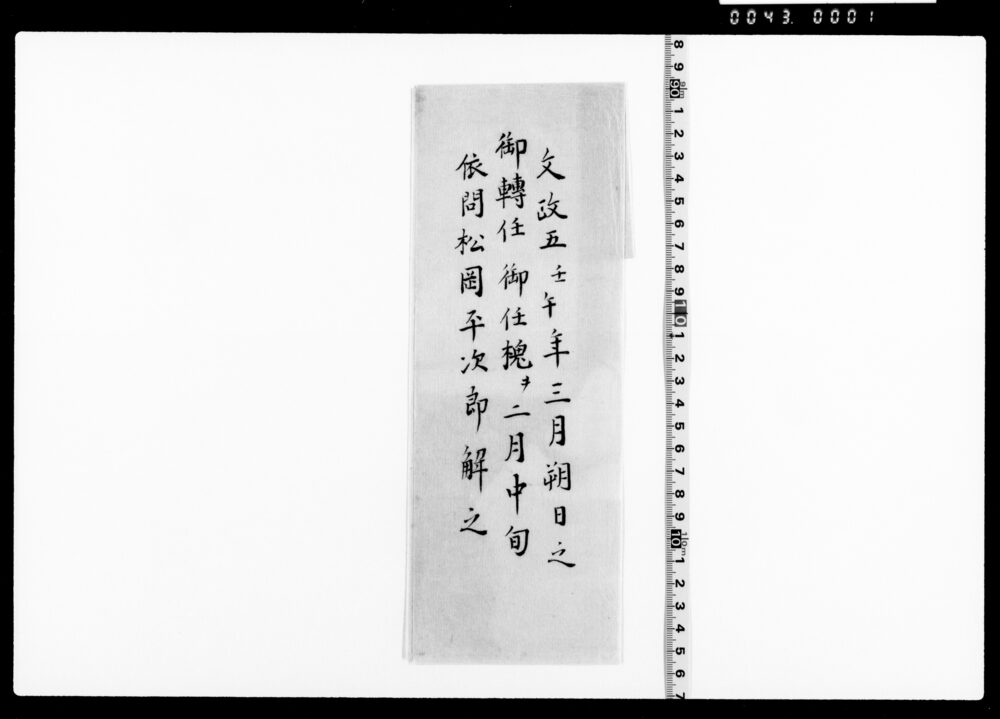 0043. 0001
文政五壬午年三月朔日之
御轉任 御任槐ヲ二月中旬
依問松岡平次郎解之
8 9 90 1 2 3 4 5 6 7 8 9 10 1 2 3 4 5 6 7 8 9 110m 1 2 3 4 5 6 7